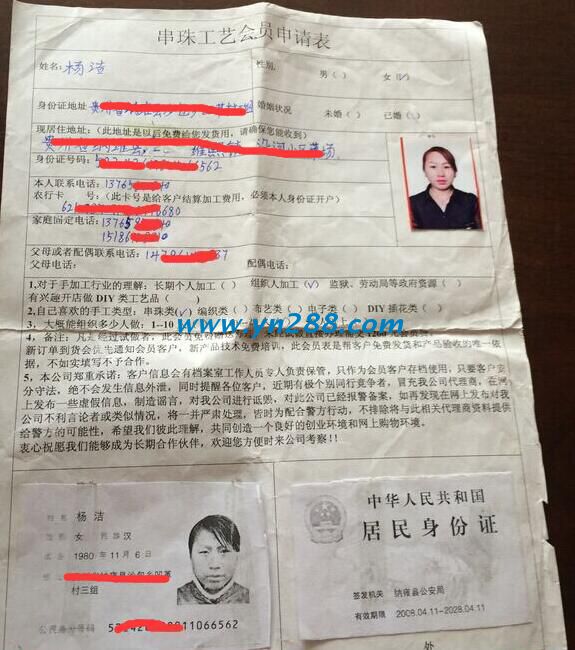 串珠工艺会员申请表
姓名: 杨洁 性别: 男 ( ) 女 (√)
身份证地址 婚姻状况 未婚 ( ) 已婚 ( )
现居住地址: (此地址是以后免费给您发货用, 请确保您能收到)
身份证号码: 6562
本人联系电话: 1376
农行卡 号: (此卡号是给客户结算加工费用, 必须本人身份证开户)
62 0680
家庭固定电话: 13765
15186
父母或者配偶联系电话: 37
父母电话: 配偶电话:
1,对于手加工行业的理解: 长期个人加工 ( ) 组织人加工 (√) 监狱、劳动局等政府资源 ( )
有兴趣开店做 DIY 类工艺品 ( )
2,自己喜欢的手工类型: 串珠类(√) 编织类 ( ) 布艺类 ( ) 电子类 ( ) DIY 插花类 ( )
3、大概能组织多少人做: 1--10
www.yn288.com
4, 备注: 凡是经
新订单到货会优先通知会员客户, 新产品技术免费培训, 此会员表是帮客户免费发货和产品验收的唯一依
据, 不如实填写不予合作。
5、本公司郑重承诺: 客户信息会有档案室工作人员专人负责保管, 只作为会员客户存档使用, 只要客户安
分守法, 绝不会发生信息外泄, 同时提醒各位客户, 近期有极个别同行竞争者, 冒充我公司代理商, 在网
上发布一些虚假信息, 制造谣言, 对我公司进行诋毁, 对此公司已经报警备案, 如再发现在网上发布对我
公司不利言论者或类似情况, 将一并严肃处理, 皆时为配合警方行动, 不排除将与此相关代理商资料提供
给警方的可能性, 希望我们彼此理解, 共同创造一个良好的创业环境和网上购物环境。
衷心祝愿我们能够成为长期合作伙伴, 欢迎您方便时来公司考察!!
姓名 杨洁
性别 女 民族 汉
1980 年 11 月 6 日
村三组
公民身份号码 11066562
中华人民共和国
居民身份证
签发机关 纳雍县公安局
有效期限 2008.04.11-2028.04.11
处